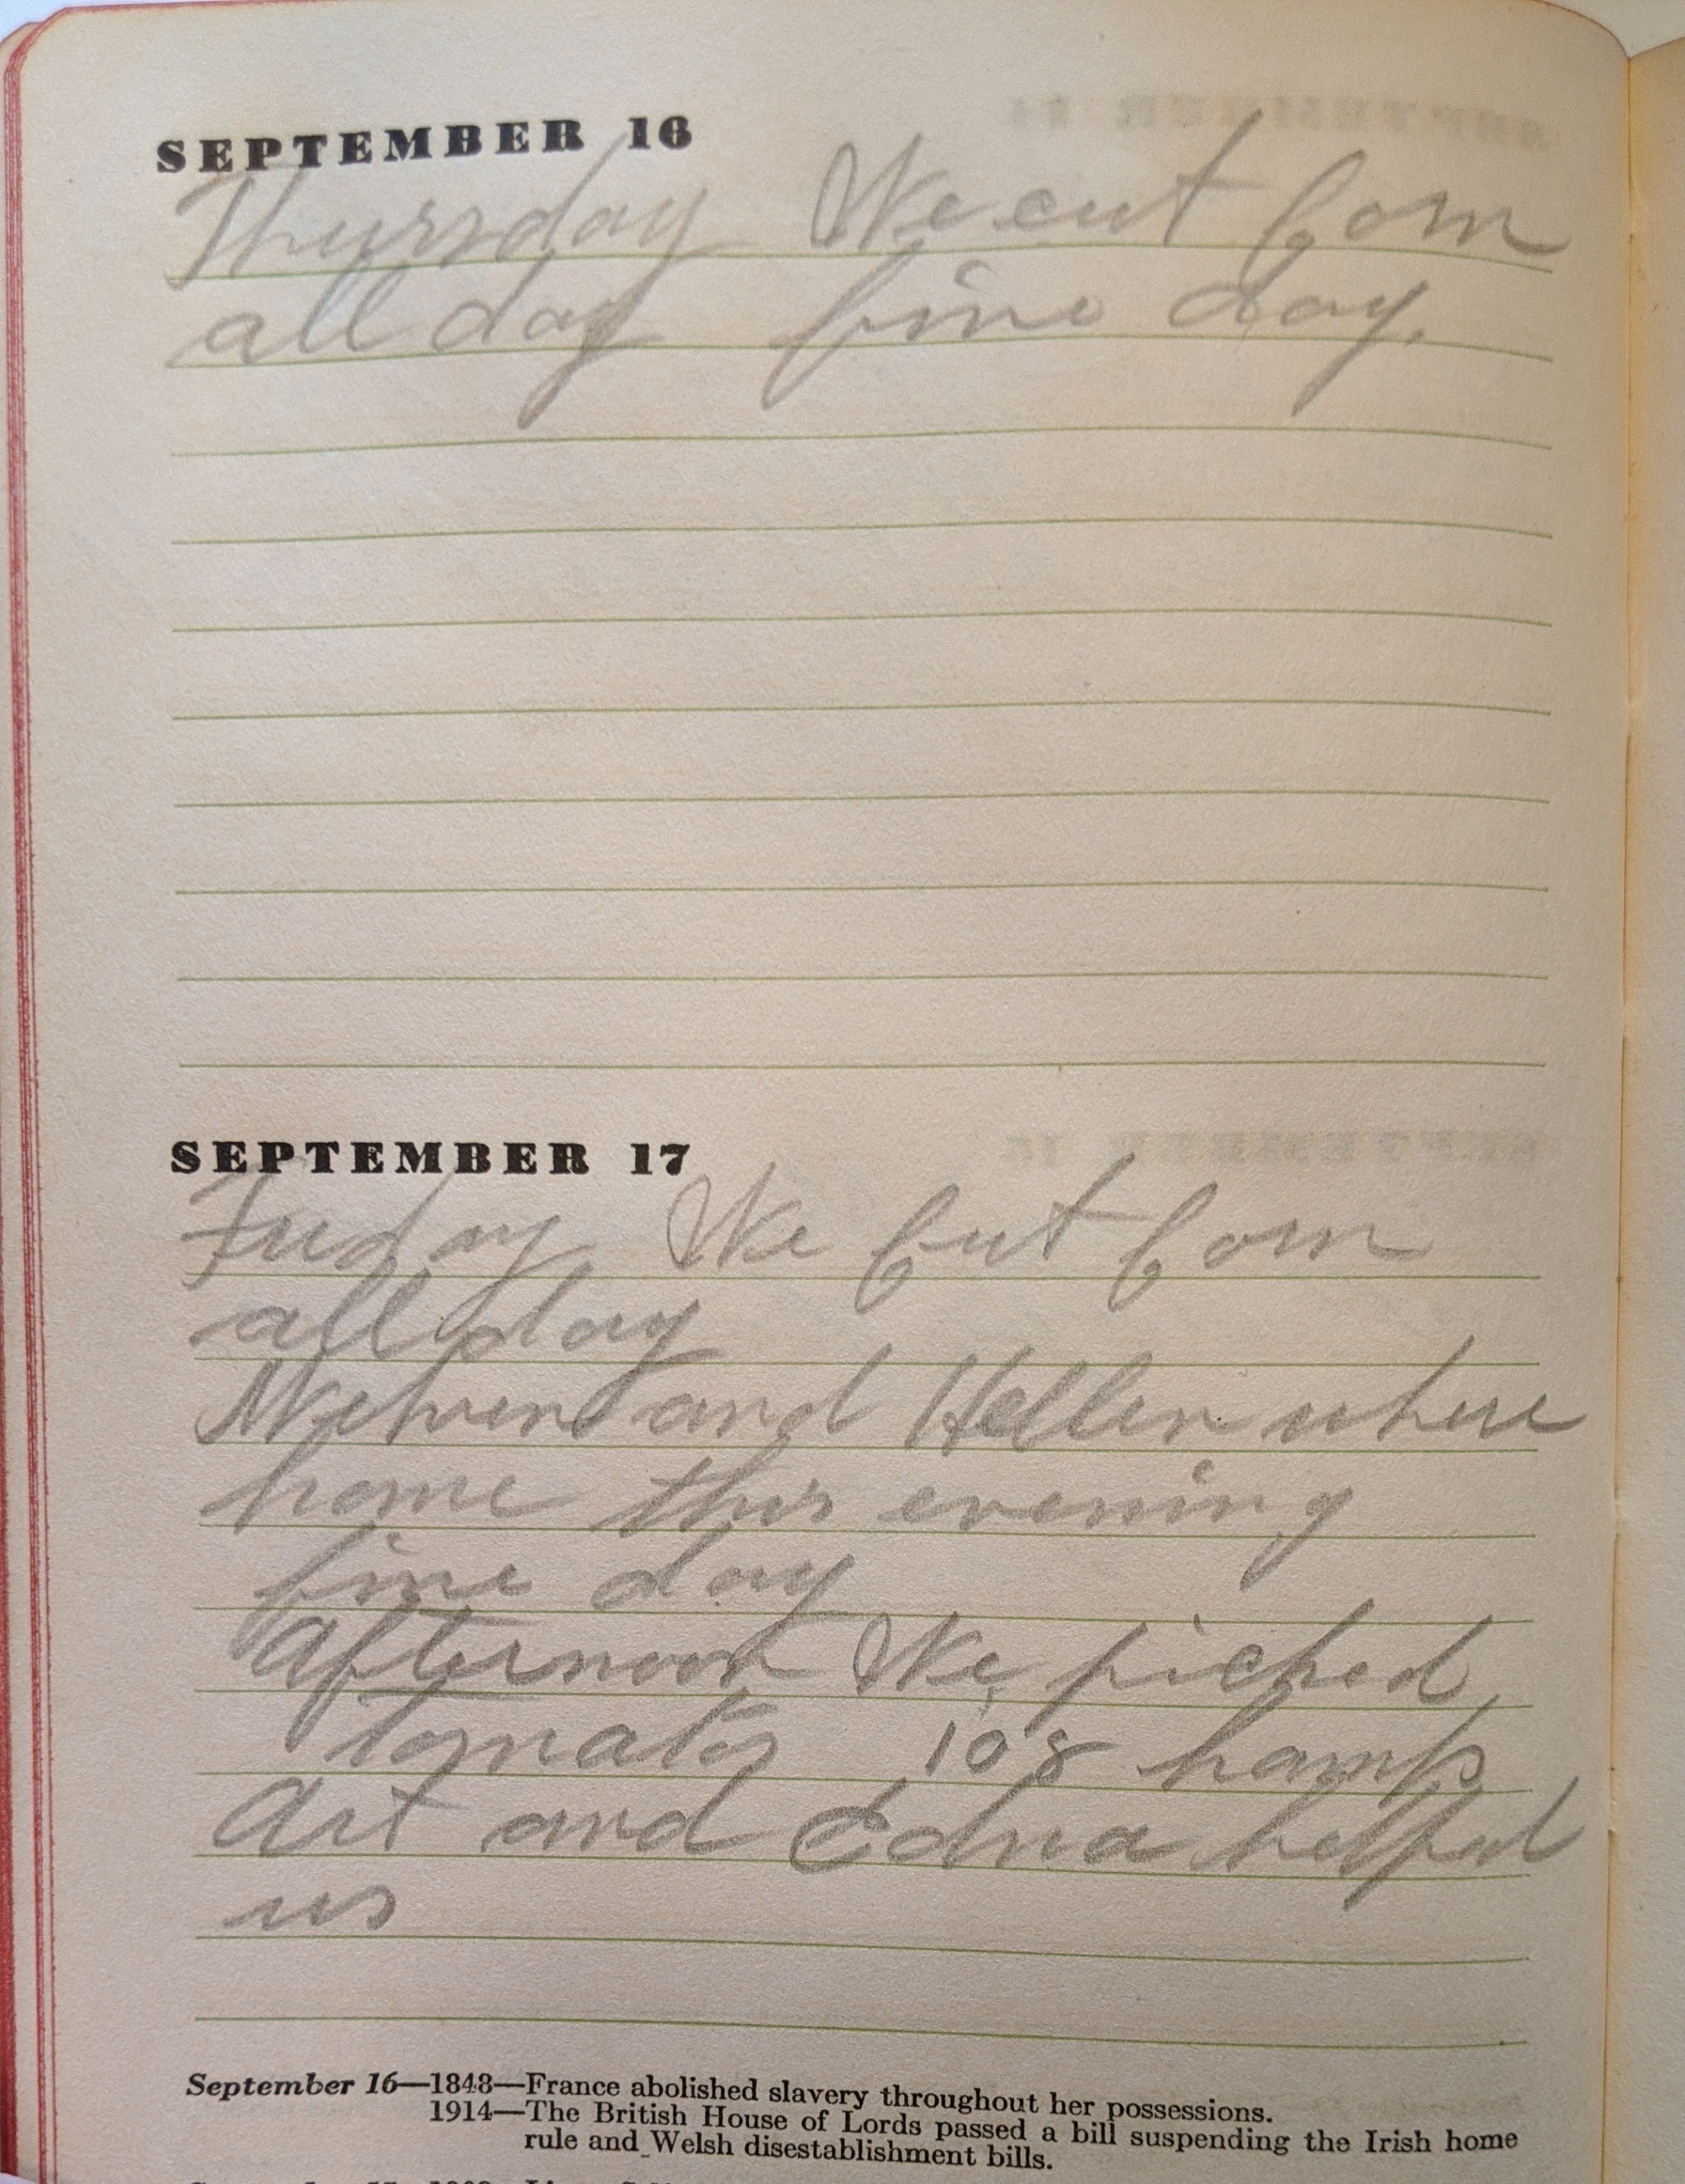 SEPTEMBER 16
Thursday We cut Corn
all day fine day.
SEPTEMBER 17
Friday We Cut Corn
all day
and Hellen where
home this evening
fine day
afternoon We picked
tomatos 108 hamp
Art and Edna helped
us
September 16—1848—France abolished slavery throughout her possessions.
1914—The British House of Lords passed a bill suspending the Irish home
rule and Welsh disestablishment bills.